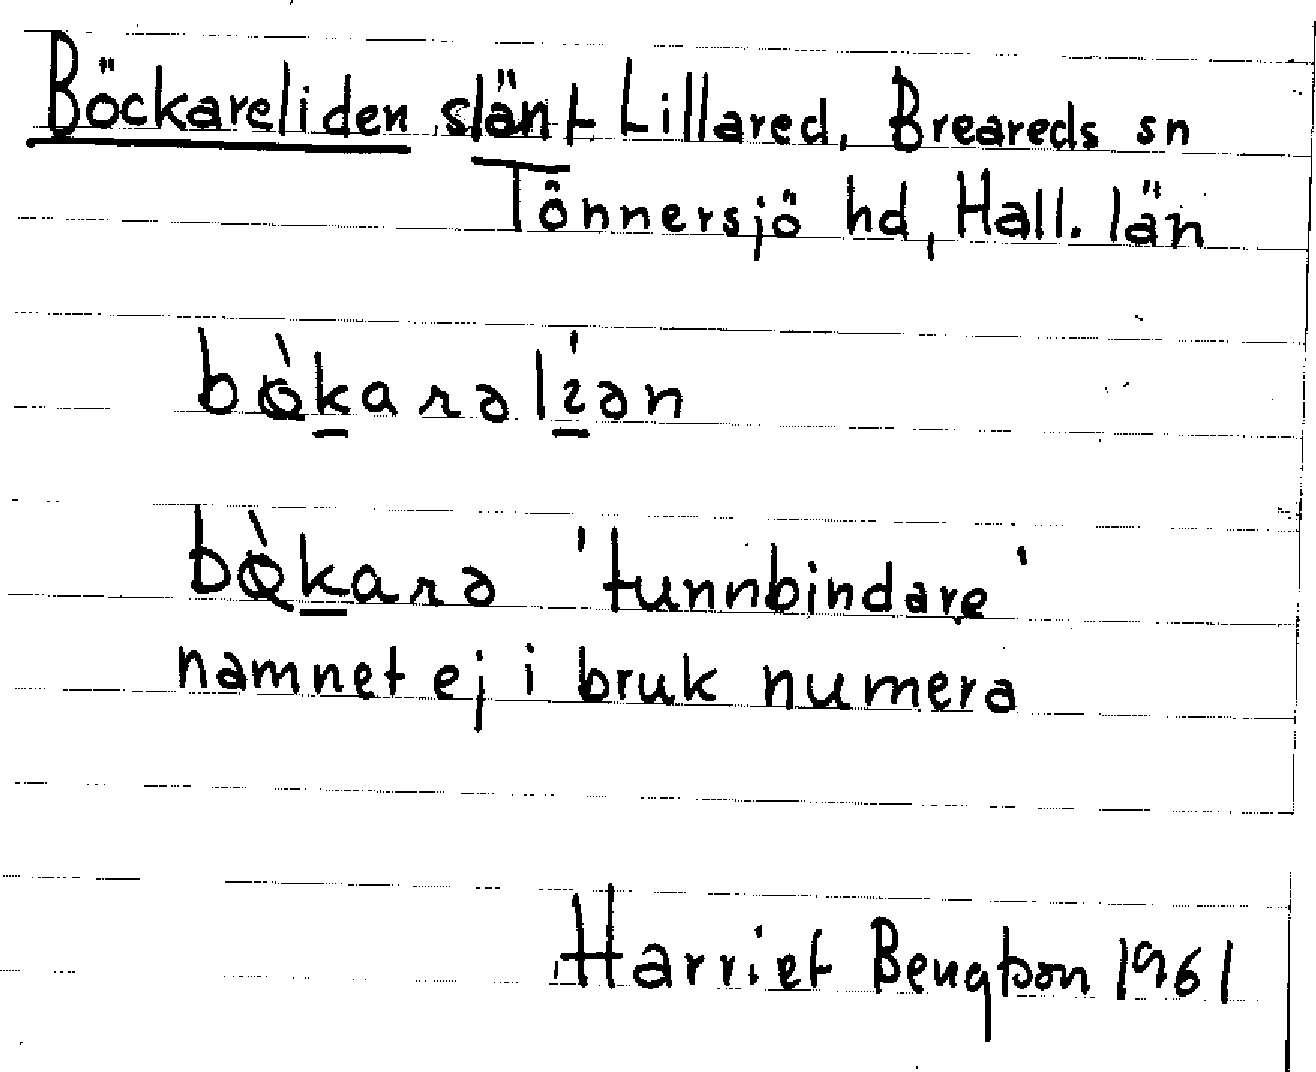 Böckareliden slänt Lillared, Breareds sn
Tönnersjö hd, Hall. län
bø̀karəlíən
bø̀karə 'tunnbindare'
namnet ej i bruk numera
Harriet Bengtson 1961